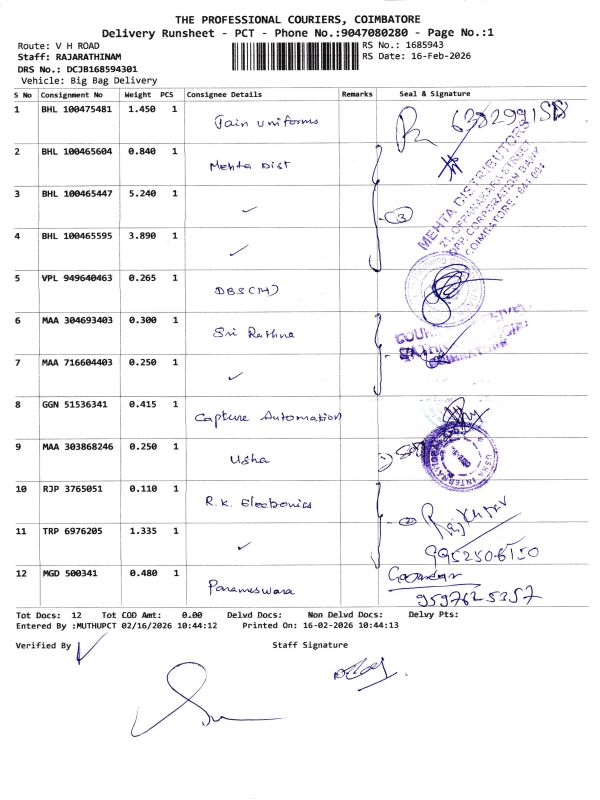 THE PROFESSIONAL COURIERS, COIMBATORE
Delivery Runsheet - PCT - Phone No.:9047080280 - Page No.:1
Route: V H ROAD RS No.: 1685943
Staff: RAJARATHINAM RS Date: 16-Feb-2026
DRS No.: DCJB168594301
Vehicle: Big Bag Delivery
S No Consignment No Weight PCS Consignee Details Remarks Seal & Signature
1 BHL 100475481 1.450 1 Jain uniforms
2 BHL 100465604 0.840 1 Mehta Dist
3 BHL 100465447 5.240 1 ✓ 3
4 BHL 100465595 3.890 1 ✓
MEHTA DISTRIBUTORS
OPP. CORPORATION BANK
COIMBATORE - 641 001
5 VPL 949640463 0.265 1 DBS(14)
6 MAA 304693403 0.300 1 Sri Rathna
7 MAA 716604403 0.250 1 ✓
8 GGN 51536341 0.415 1 Capture Automation
9 MAA 303868246 0.250 1 Usha
USHA INTERNATIONAL
10 RJP 3765051 0.110 1 R.K. Electronics
11 TRP 6976205 1.335 1 ✓ 2
12 MGD 500341 0.480 1 Parameswara
9597625357
Tot Docs: 12 Tot COD Amt: 0.00 Delvd Docs: Non Delvd Docs: Delvy Pts:
Entered By :MUTHUPCT 02/16/2026 10:44:12 Printed On: 16-02-2026 10:44:13
Verified By Staff Signature